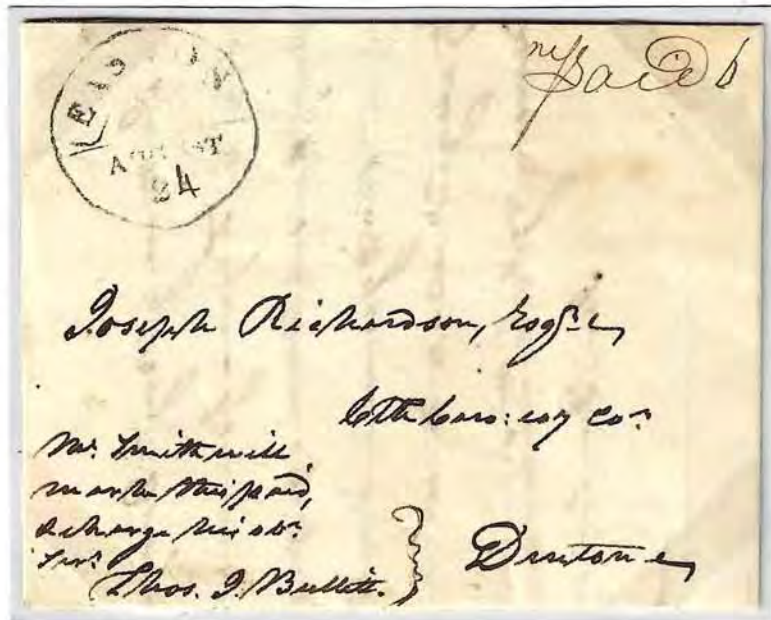 EASTON
AUGUST
24
Paid 6
Joseph Richardson, Esqr.
Clk Caro: coy Co
Mr. Smith will
mark this paid,
& charge his obt
Servt
Thos. J. Bullitt.
Denton